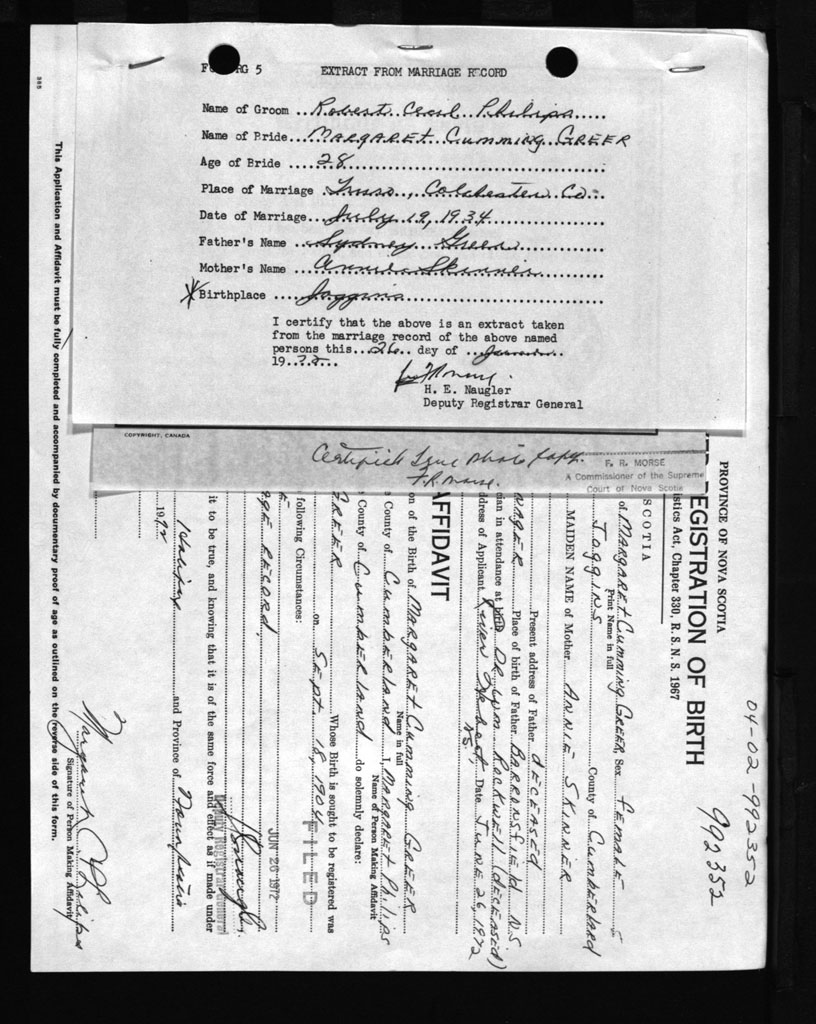 RG 5 EXTRACT FROM MARRIAGE RECORD
Name of Groom ...Robert Cecil Philips.....
Name of Bride ...MARGARET Cumming GREER
Age of Bride ....28..........
Place of Marriage .Truro, Colchester Co...
Date of Marriage...July 19, 1934........
Father's Name ..Sydney Greer..........
Mother's Name ...Annie Skinner.........
Birthplace ....Joggins..........
I certify that the above is an extract taken
from the marriage record of the above named
persons this...26.. day of ...
19..72....
H. E. Naugler
Deputy Registrar General
COPYRIGHT, CANADA
Certified True Photo Copy.
F.R. Morse.
F. R. MORSE
A Commissioner of the Supreme
Court of Nova Scotia
04-02-992352
992352
PROVINCE OF NOVA SCOTIA
EGISTRATION OF BIRTH
istics Act, Chapter 330, R. S. N. S. 1967
SCOTIA
of MARGARET Cumming GREER, Sex female
Print Name in full
Joggins County of Cumberland
MAIDEN NAME of Mother ANNIE SKINNER
Present address of Father deceased
Place of birth of Father BARRONSFIELD N.S
cian in attendance at birth DR. Wm ROCKWELL (deceased)
ddress of Applicant River Hebert, N.S. Date JUNE 26, 1972
AFFIDAVIT
on of the Birth of MARGARET Cumming GREER
Name in full
County of CUMBERLAND I, MARGARET Philips
Name of Person Making Affidavit
County of CUMBERLAND do solemnly declare:
GREER Whose Birth is sought to be registered was
on Sept. 18, 1904
FILED
following Circumstances:
JUN 26 1972
RECORD,
Deputy Registrar General
it to be true, and knowing that it is of the same force and effect as if made under
Halifax and Province of Nova Scotia
1972
Margaret C Philips
Signature of Person Making Affidavit
This Application and Affidavit must be fully completed and accompanied by documentary proof of age as outlined on the (reverse side of this form.